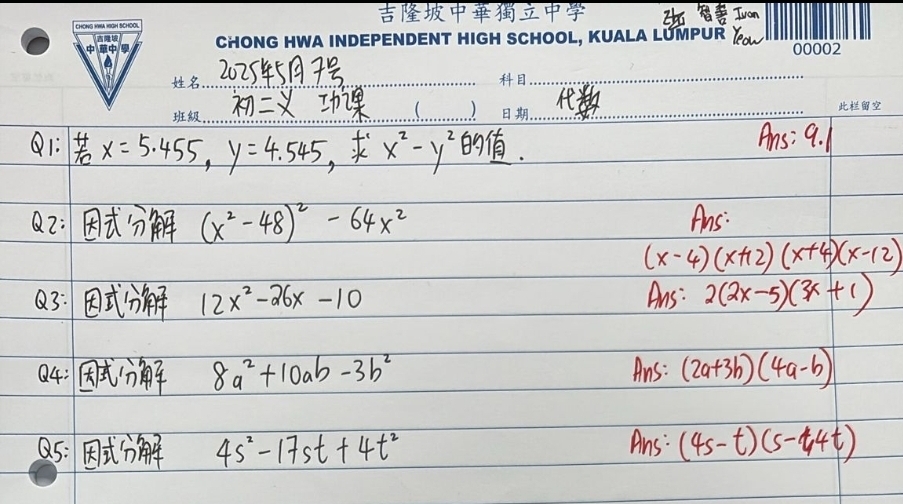 吉隆坡中華獨立中學
張智善 Ivan Yeow
CHONG HWA INDEPENDENT HIGH SCHOOL, KUALA LUMPUR
00002
CHONG HWA HIGH SCHOOL
吉隆坡
中華中學
姓名 2025年5月7号 科目
班級 初二义 功课 ( ) 日期 代数
此栏留空
Q1: 若 x = 5.455, y = 4.545, 求 x² - y² 的值. Ans: 9.1
Q2: 因式分解 (x² - 48)² - 64x² Ans:
(x-4)(x+12)(x+4)(x-12)
Q3: 因式分解 12x² - 26x - 10 Ans: 2(2x-5)(3x+1)
Q4: 因式分解 8a² + 10ab - 3b² Ans: (2a+3b)(4a-b)
Q5: 因式分解 4s² - 17st + 4t² Ans: (4s-t)(s-4t)